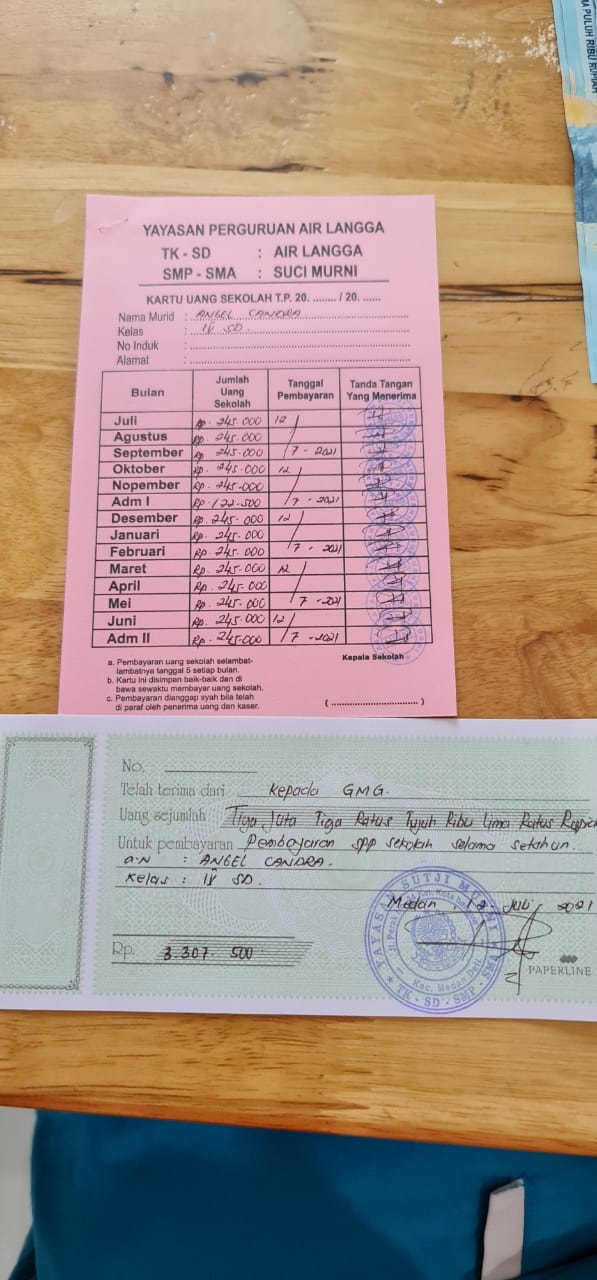 A PULUH RIBU RUPIAH
YAYASAN PERGURUAN AIR LANGGA
TK - SD : AIR LANGGA
SMP - SMA : SUCI MURNI
KARTU UANG SEKOLAH T.P. 20. ........ / 20. ......
Nama Murid : ANGEL CANDRA
Kelas : IV SD.
No Induk :
Alamat :
Bulan Jumlah Uang Sekolah Tanggal Pembayaran Tanda Tangan Yang Menerima
Juli Rp. 245.000 12
Agustus Rp. 245.000
September Rp 245.000 /7 - 2021
Oktober Rp. 245.000 12
Nopember Rp. 245.000
Adm I Rp. 122.500 /7 - 2021
Desember Rp. 245.000 12
Januari Rp. 245.000
Februari Rp. 245.000 /7 - 2021
Maret Rp. 245.000 12
April Rp. 245.000
Mei Rp. 245.000 /7 - 2021
Juni Rp. 245.000 12/
Adm II Rp. 245.000 /7 - 2021
a. Pembayaran uang sekolah selambat-
lambatnya tanggal 5 setiap bulan.
b. Kartu ini disimpan baik-baik dan di
bawa sewaktu membayar uang sekolah.
c. Pembayaran dianggap syah bila telah
di paraf oleh penerima uang dan kaser.
Kepala Sekolah
( ................................ )
No.
Telah terima dari Kepada GMG.
Uang sejumlah Tiga Juta Tiga Ratus Tujuh Ribu Lima Ratus Rupiah
Untuk pembayaran Pembayaran SPP sekolah selama setahun.
a.n : ANGEL CANDRA.
Kelas : IV SD.
Medan, 12 - Juli - 2021
YAYASAN SUTJI MURNI
Kec. Medan Deli
TK - SD - SMP - SMA
Rp. 3.307.500
PAPERLINE